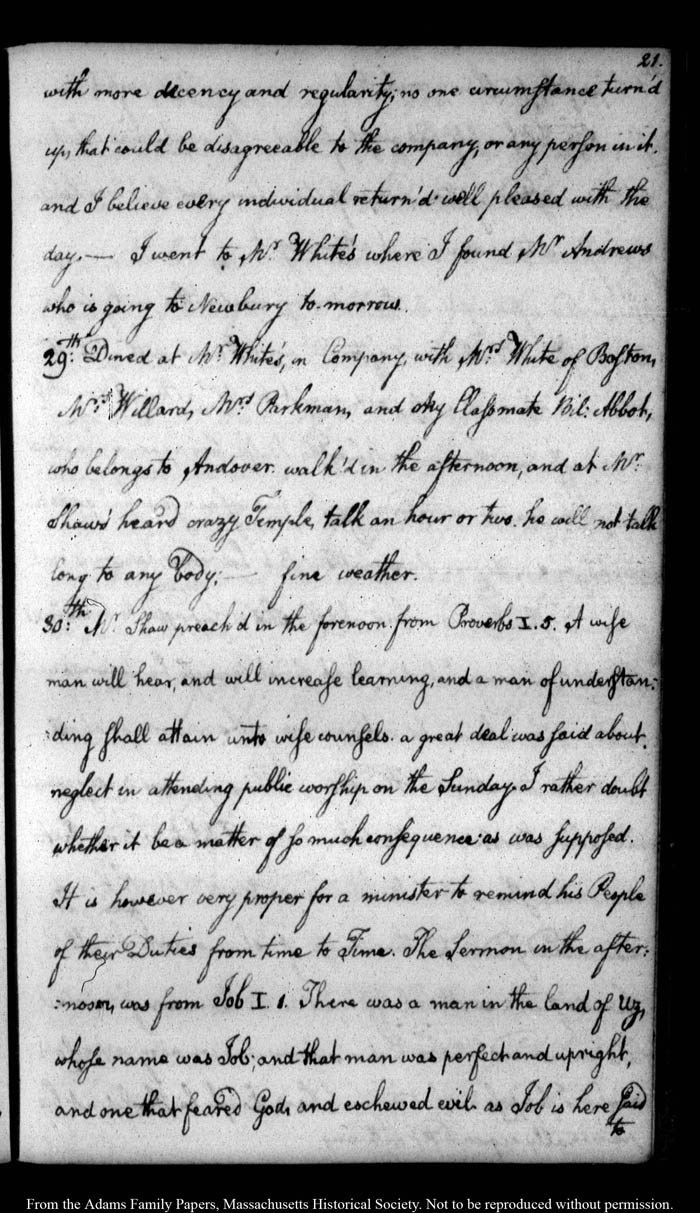 21.
with more decency and regularity; no one circumstance turn'd
up, that could be disagreeable to the company, or any person in it.
and I believe every individual return'd well pleased with the
day.— I went to Mr. White's where I found Mr. Andrews
who is going to Newbury to-morrow.
29th: Dined at Mr. White's, in Company, with Mrs. White of Boston,
Mrs. Willard, Mrs. Parkman, and my Classmate Bil: Abbot,
who belongs to Andover. walk'd in the afternoon, and at Mr.
Shaw's heard crazy Temple, talk an hour or two. he will not talk
long to any body;— fine weather.
30th: Mr. Shaw preach'd in the forenoon from Proverbs I. 5. A wise
man will hear, and will increase learning, and a man of understan:
:ding shall attain unto wise counsels. a great deal was said about
neglect in attending public worship on the Sunday. I rather doubt
whether it be a matter of so much consequence as was supposed.
It is however very proper for a minister to remind his People
of their Duties from time to Time. The Sermon in the after:
:noon, was from Job I. 1. There was a man in the land of Uz,
whose name was Job; and that man was perfect and upright,
and one that feared God, and eschewed evil. as Job is here said
to
From the Adams Family Papers, Massachusetts Historical Society. Not to be reproduced without permission.